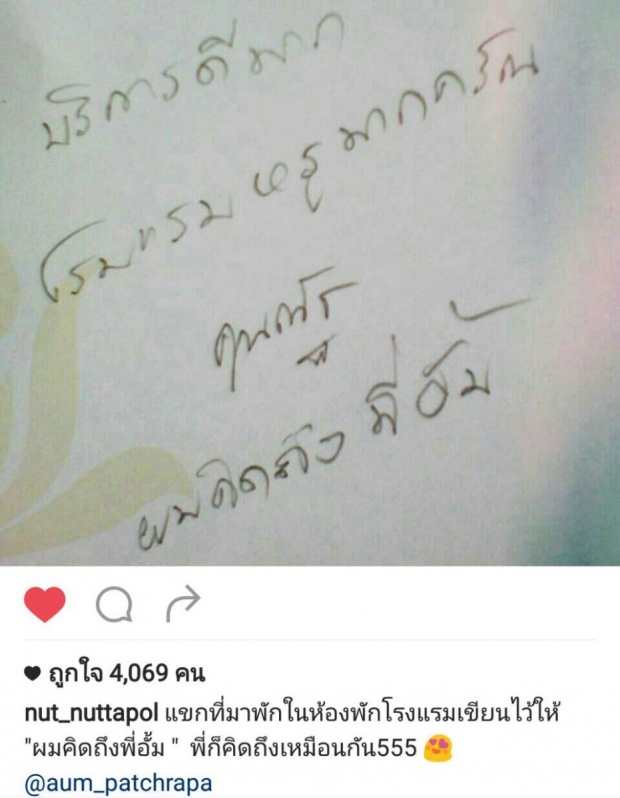 บริการดีมาก
โรมแรมหรูมากครับ
คุณณัฐ
ผมคิดถึง พี่อั้ม
ถูกใจ 4,069 คน
nut_nuttapol แขกที่มาพักในห้องพักโรงแรมเขียนไว้ให้
"ผมคิดถึงพี่อั้ม " พี่ก็คิดถึงเหมือนกัน555 😍
@aum_patchrapa